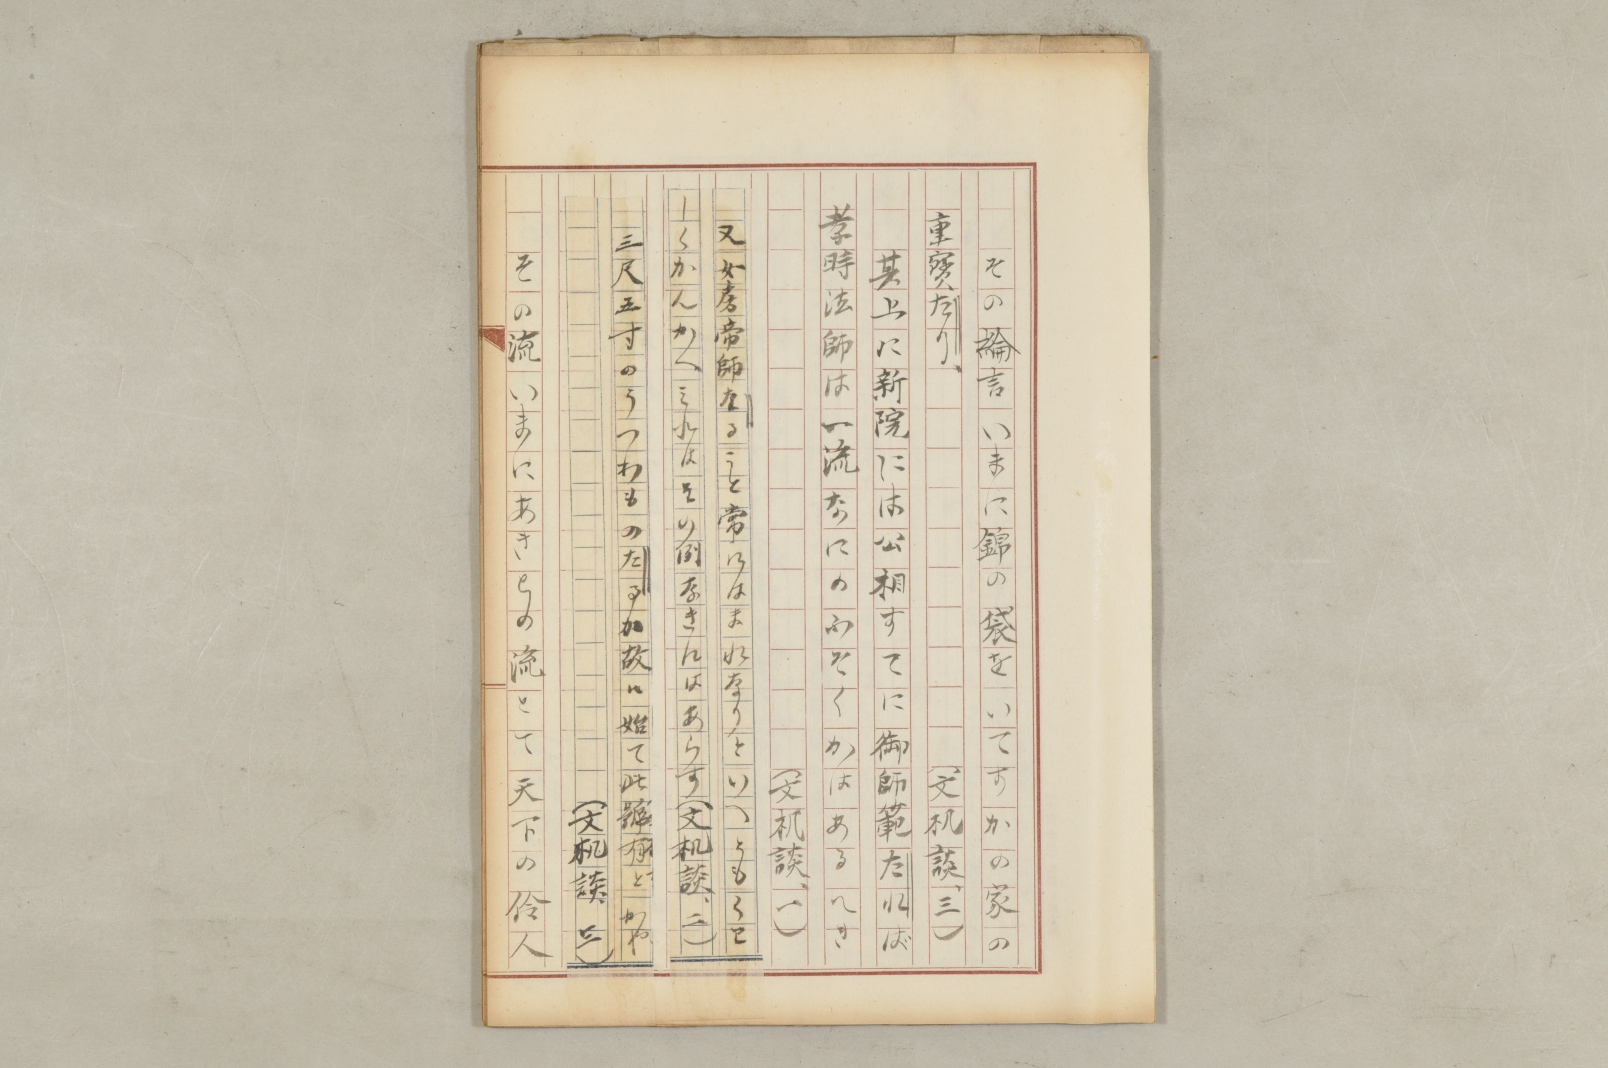 その綸言いまに錦の袋をいてすかの家の
重寳たり、(文机談、三)
其上に新院には公相すてに御師範たれば
孝時法師は一流なにのふそくかはあるへき
(文机談、一)
又女房帝師なること常にはまれなりといへともくは
しくかんかへみれはその例なきにはあらす(文机談、二)
三尺五寸のうつわものたるか故に始て此號有とかや
(文机談、二)
その流いまにあきらの流とて天下の伶人